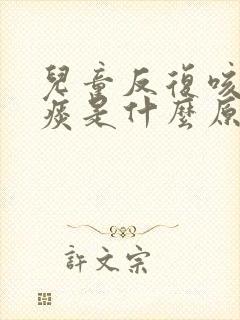 兒童反復咳
痰是什麼原
許文宗